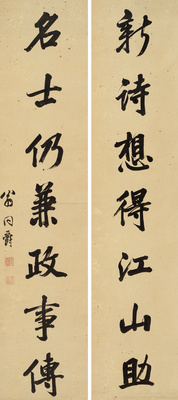 新詩想得江山助
名士仍兼政事傳
翁同龢